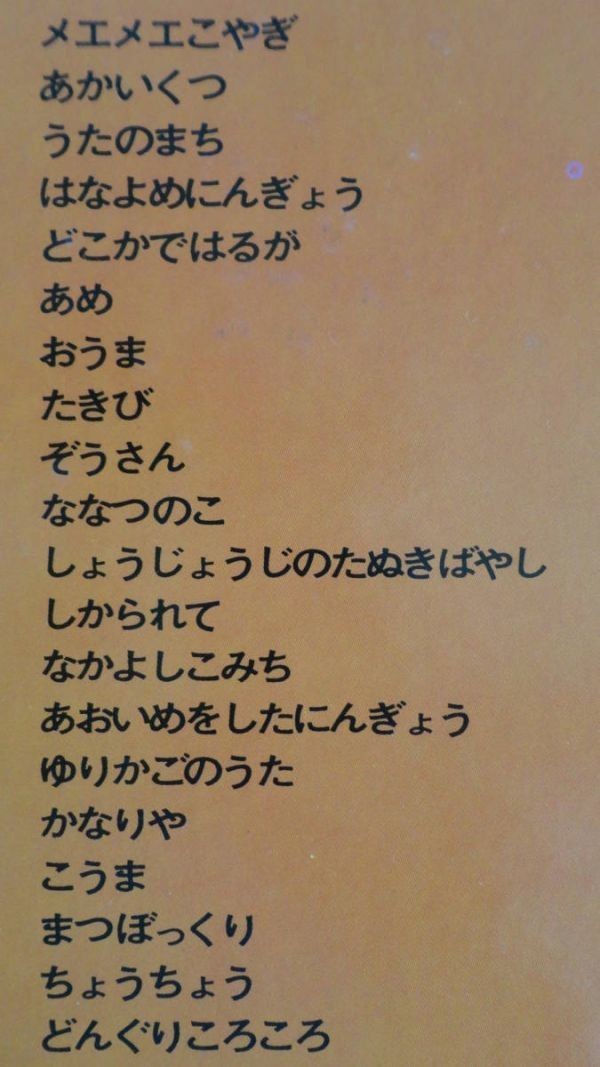 メエメエこやぎ
あかいくつ
うたのまち
はなよめにんぎょう
どこかではるが
あめ
おうま
たきび
ぞうさん
ななつのこ
しょうじょうじのたぬきばやし
しかられて
なかよしこみち
あおいめをしたにんぎょう
ゆりかごのうた
かなりや
こうま
まつぼっくり
ちょうちょう
どんぐりころころ